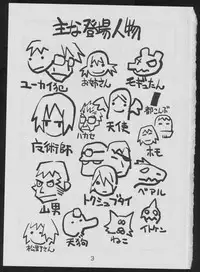 主な登場人物
ユーカイ犯
お姉さん
モギたん
都こんぶ
魔術師
ハカセ
天使
ホモ
山男
トクシュブタイ
ベアル
松野さん
天狗
ねこ
イトケン
3